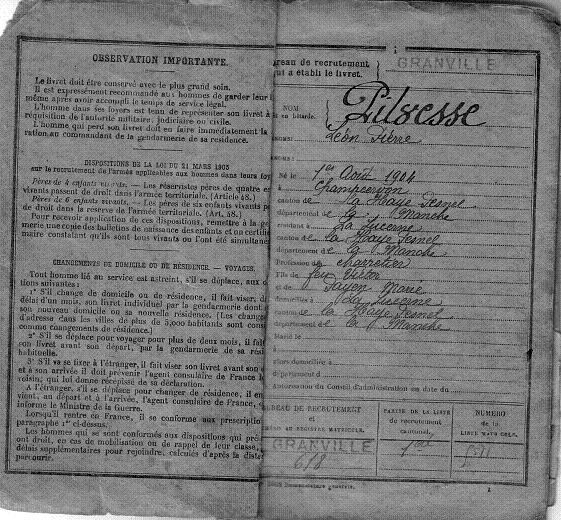 OBSERVATION IMPORTANTE.
Le livret doit être conservé avec le plus grand soin.
Il est expressément recommandé aux hommes de garder leur
même après avoir accompli le temps de service légal.
L'homme dans ses foyers est tenu de représenter son livret à
réquisition de l'autorité militaire, judiciaire ou civile.
L'homme qui perd son livret doit en faire immédiatement la
ration au commandant de la gendarmerie de sa résidence.
DISPOSITIONS DE LA LOI DU 21 MARS 1905
sur le recrutement de l'armée applicables aux hommes dans leurs foy
Pères de 4 enfants vivants. — Les réservistes pères de quatre en
vivants passent de droit dans l'armée territoriale. (Article 48.)
Pères de 6 enfants vivants. — Les pères de six enfants vivants p
de droit dans la réserve de l'armée territoriale. (Art. 48.)
Pour recevoir application de ces dispositions, remettre à la ge
merie une copie des bulletins de naissance des enfants et un certifi
maire constatant qu'ils sont tous vivants ou l'ont été simultané
CHANGEMENTS DE DOMICILE OU DE RÉSIDENCE. — VOYAGES.
Tout homme lié au service est astreint, s'il se déplace, aux o
tions suivantes :
1° S'il change de domicile ou de résidence, il fait viser, d
délai d'un mois, son livret individuel par la gendarmerie dont
son nouveau domicile ou sa nouvelle résidence. (Les change
d'adresse dans les villes de plus de 5,000 habitants sont cons
comme changements de résidence.)
2° S'il se déplace pour voyager pour plus de deux mois, il fait
son livret avant son départ, par la gendarmerie de sa rési
habituelle.
3° S'il va se fixer à l'étranger, il fait viser son livret avant son
et à son arrivée il doit prévenir l'agent consulaire de France l
voisin, qui lui donne récépissé de sa déclaration.
A l'étranger, s'il se déplace pour changer de résidence, il en
vient, au départ et à l'arrivée, l'agent consulaire de France,
informe le Ministre de la Guerre.
Lorsqu'il rentre en France, il se conforme aux prescription
paragraphe 1er ci-dessus.
Les hommes qui se sont conformés aux dispositions qui pré
ont droit, en cas de mobilisation ou de rappel de leur classe,
délais supplémentaires pour rejoindre, calculés d'après la dista
parcourir.
1
reau de recrutement
qui a établi le livret.
GRANVILLE
NOM
Pilvesse
Léon Pierre
Né le 1er Août 1904
Champcervon
canton de la Haye Pesnel
département de la Manche
résidant à La Lucerne
canton de la Haye Pesnel
département de la Manche
Profession de charretier
Fils de feu Victor
et de Marie
domiciliés à la Lucerne
canton de la Haye Pesnel
département de la Manche
Marié le
à
alors domiciliée à
département d
Autorisation du Conseil d'administration en date du
BUREAU DE RECRUTEMENT
et
NUMÉRO AU REGISTRE MATRICULE.
GRANVILLE
618
PARTIE DE LA LISTE
de recrutement
cantonal.
NUMÉRO
de la
LISTE MATRICULE.
1